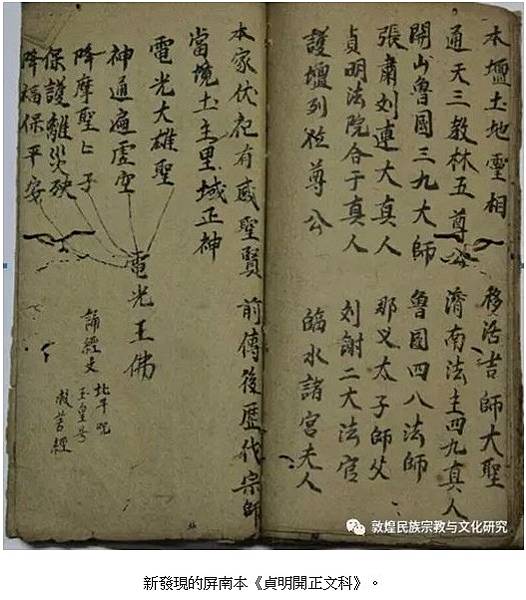 本壇土地靈相 移活吉師大聖
通天三教林五尊公 濟南法主四九真人
開山魯國三九大師 魯國四八法師
張肅刘連大真人 那义太子師父
貞明法院合于真人 刘謝二大法官
護壇列位尊公 臨水諸宮夫人
本家伏祀有感聖賢 前傳後歷代宗師
當境土主里域正神
電光大雄聖
神通遍虛空
降摩聖匕子
保護離災殃
降福保平安
電光王佛
誦經文
北斗咒
玉皇号
救苦經
敦煌民族宗教与文化研究
新發現的屏南本《貞明開正文科》。